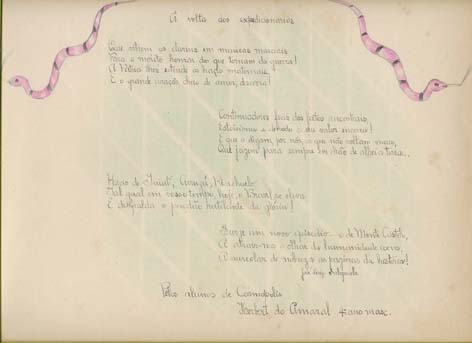 A volta dos expedicionarios
Que vibrem os clarins em músicas marciais
Para o mérito honrar dos que tornam da guerra!
A Pátria lhes estende os braços maternais
E o grande coração cheio de amor, descerra!
Continuadores fieis dos feitos ancestrais,
e do valor
E que o digam, por nós, os que não voltam mais,
Que jazem para sempre em chão de alheia terra...
Heróis de Tuiutí, Riachuelo
Tal qual em vosso tempo, hoje, o Brasil se eleva
E desfralda o pavilhão rutilante de glória!
Surge um novo episódio - o de Monte Castelo,
A atrair-nos o olhar da humanidade
A aureolar de nobreza as páginas da história!
Pelos alunos de Cosmopolis
Herbert do Amaral 4º ano masc.